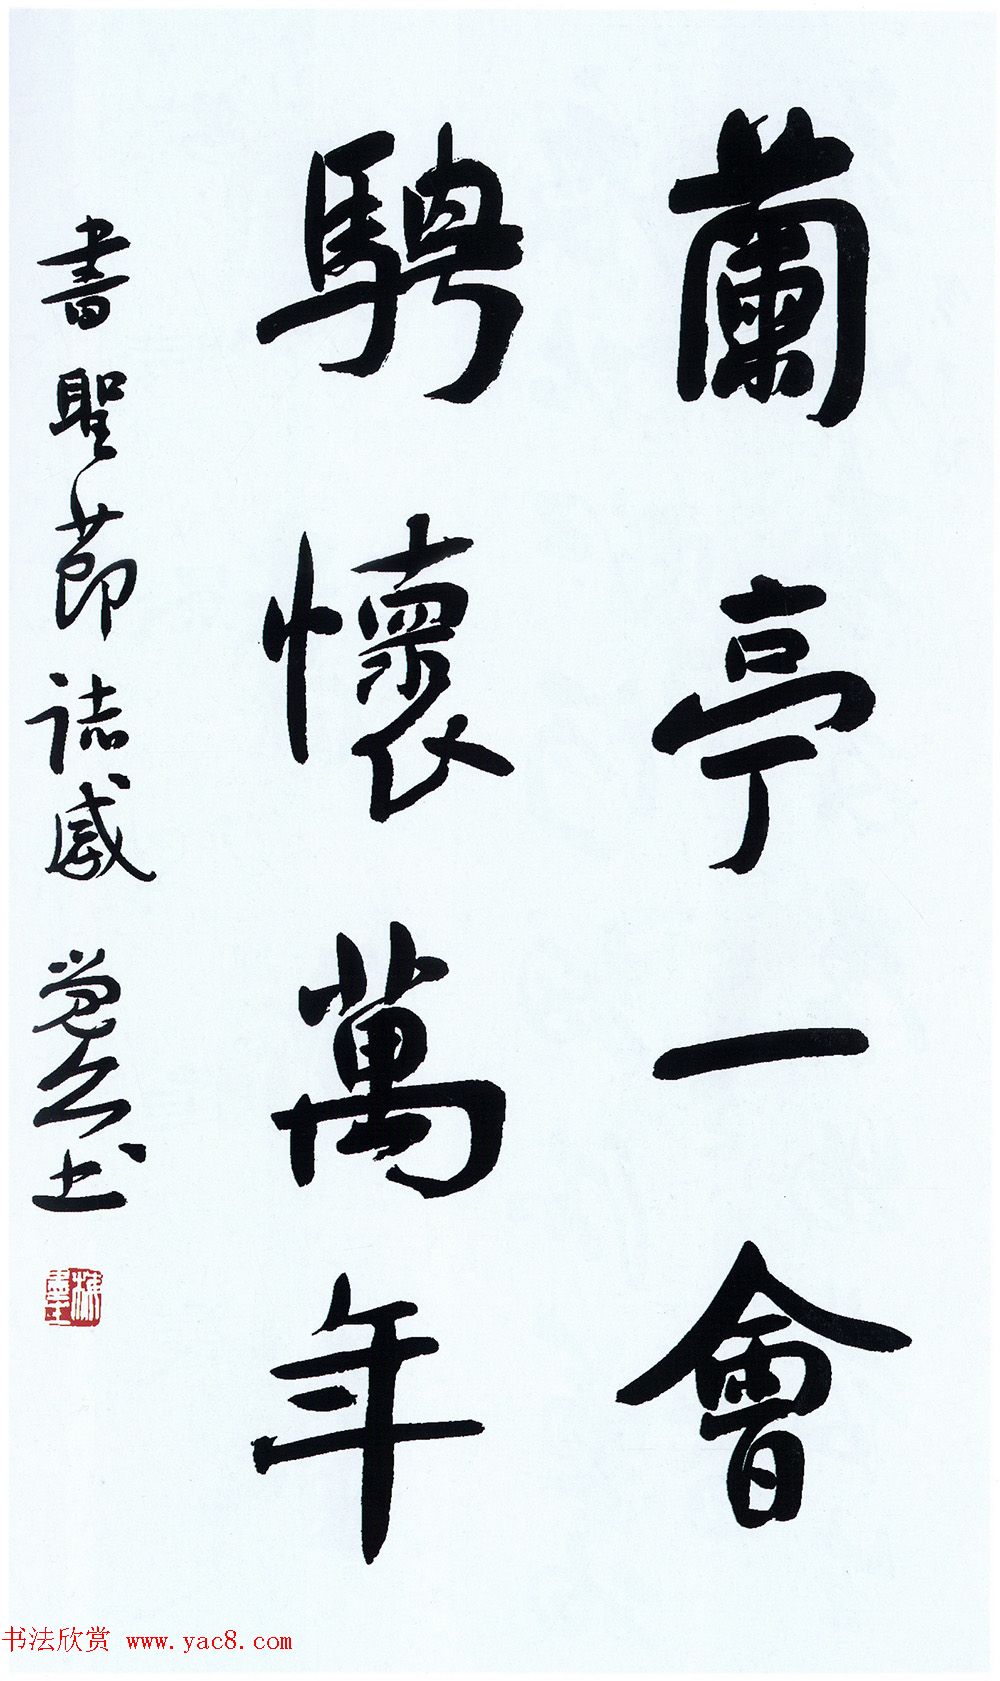 蘭亭一會
騁懷萬年
書聖節誌感
书法欣赏 www.yac8.com